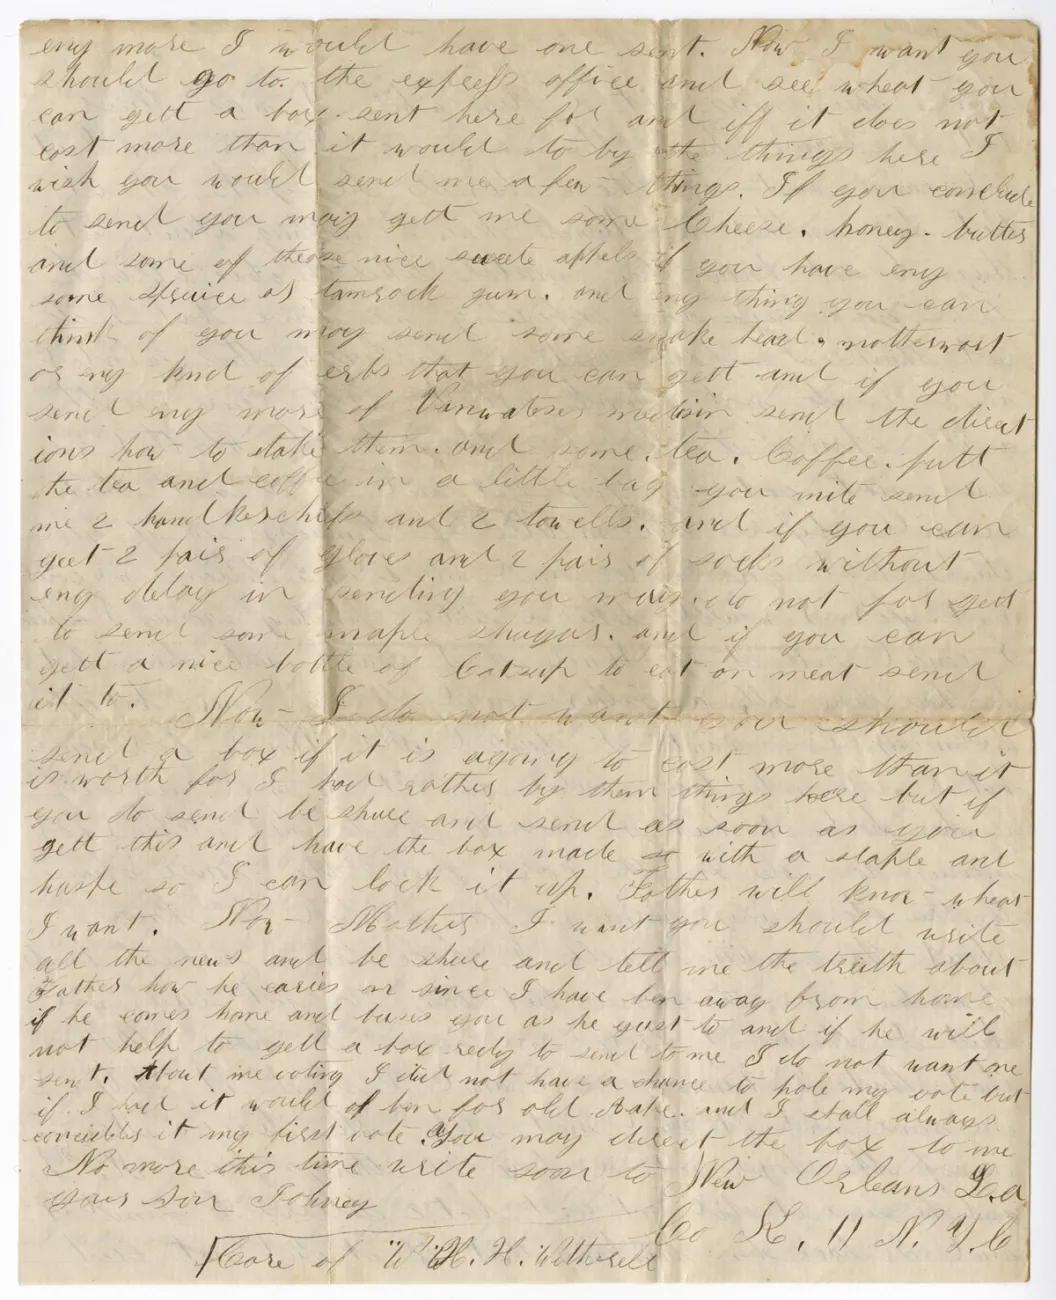 eny more I would have one sent. Now I want you
should go to. the express office and see wheat you
can gett a box. sent here for and iff it does not
cost more than it would to by the things here I
wish you would send me a few things. If you conclude
to send you may gett me some Cheese. honey. butter
and some of those nice sweete appels if you have eny
some spruice or tamrock gum. and eny thing you can
think of you may send some snake head. motterwort
or eny kind of erbs that you can gett and if you
send eny more of Vanwaters medisin send the direct
ions how to take them. and some. tea. Coffee. putt
the tea and coffee in a little bag you mite send
me 2 handkerchifs and 2 towells. and if you can
geet 2 pair of gloves and 2 pair of socks without
eny delay in sending you may. do not for gett
to send some maple shugar. and if you can
gett a nice bottle of Catsup to eat on meat send
it to.
Now I do not want you should
send a box if it is agoing to cost more than it
is worth for I had rather by them things here but if
you do send be shure and send as soon as you
gett this and have the box made so with a staple and
haspe so I can lock it up. Father will know whear
I want. Now Mother I want you should write
all the news and be shure and tell me the treuth about
Father how he caries on since I have ben away from home
if he comes home and buses you as he yust to and if he will
not help to gett a box redy to send to me I do not want one
sent. About me voting I did not have a chance to pole my vote but
if I had it would of ben for old Abe. and I shall always
concider it my first vote. You may direct the box to me
No more this time write soon to New Orleans La
your son Johney
Co K. 11 N. Y. C
Care of W. H. H. Wetherell